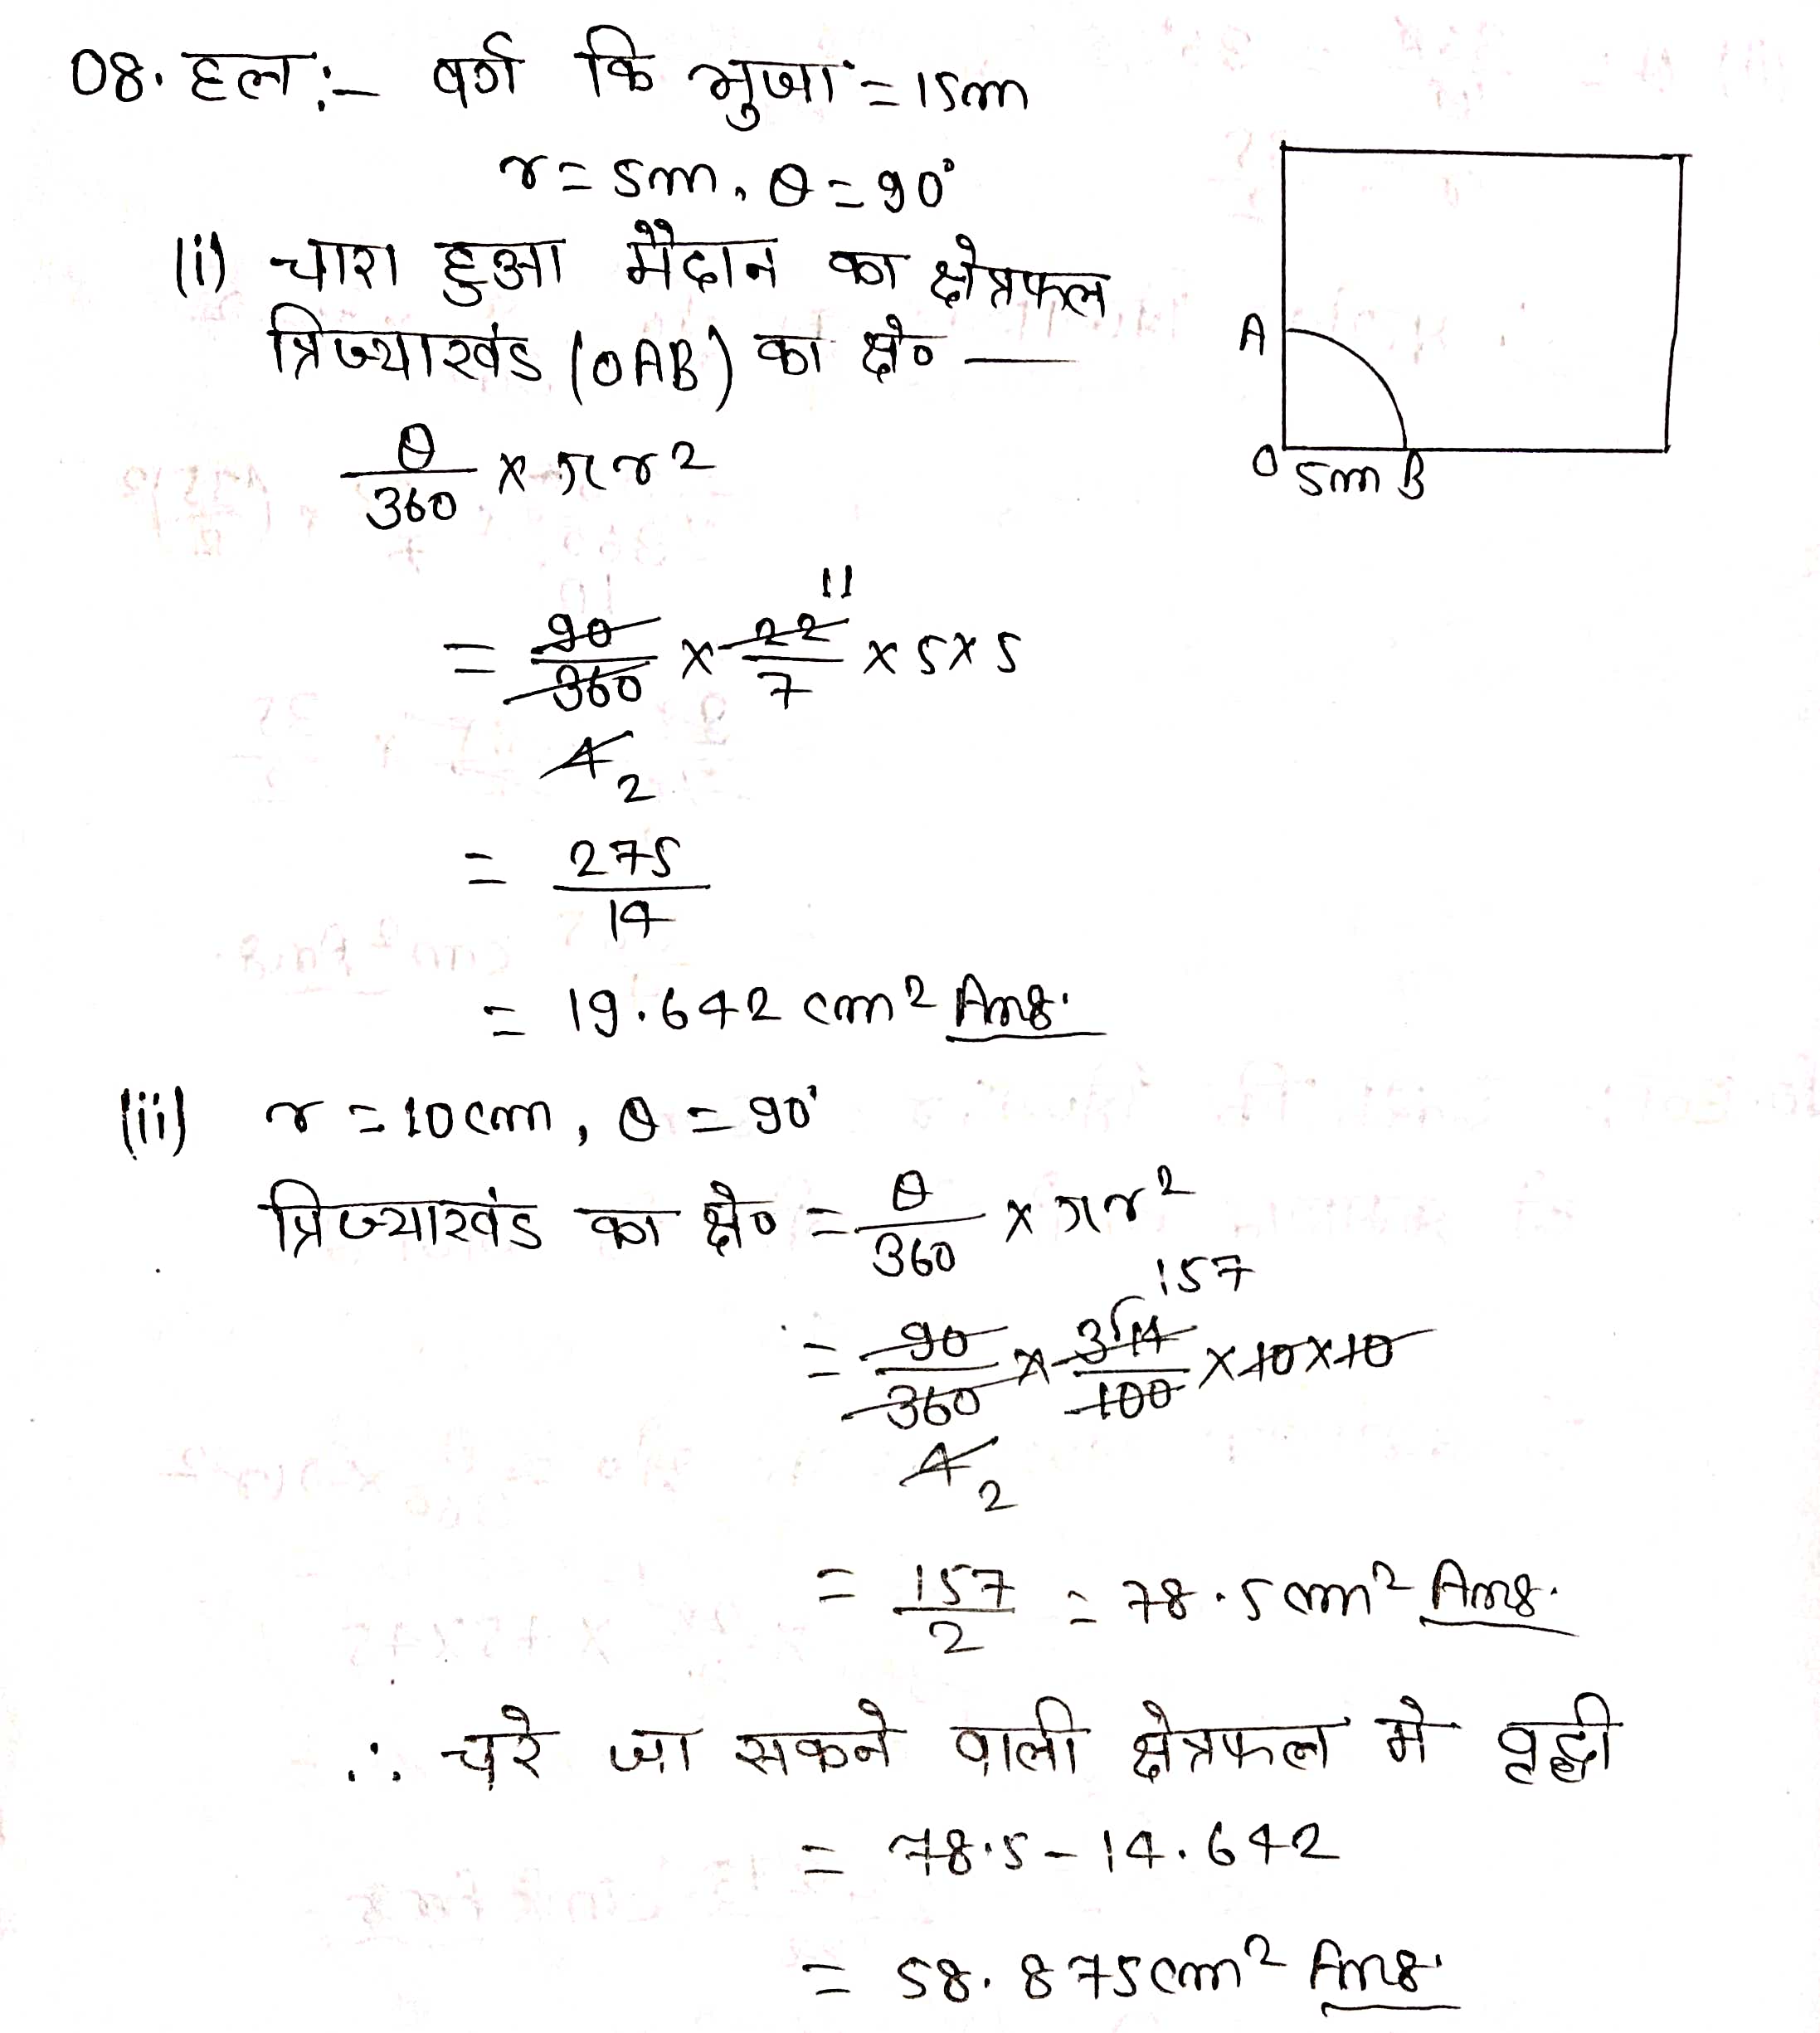 08. हल :- वर्ग कि भुजा = 15m
r = 5m, θ = 90°
(i) चारा हुआ मैदान का क्षेत्रफल
त्रिज्याखंड (OAB) का क्षे० —
θ/360 × πr2
= 90/360 × 22/7 × 5×5
11
4
2
= 275/14
= 19.642 cm2 Ans.
A
O 5m B
(ii) r = 10cm, θ = 90°
त्रिज्याखंड का क्षे० = θ/360 × πr2
157
= 90/360 × 314/100 × 10×10
4
2
= 157/2 = 78.5 cm2 Ans.
∴ चरे जा सकने वाली क्षेत्रफल मे वृद्धी
= 78.5 - 14.642
= 58.875cm2 Ans.